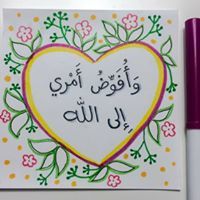 وَأُفَوِّضُ أَمْرِي
إِلى اللّٰه